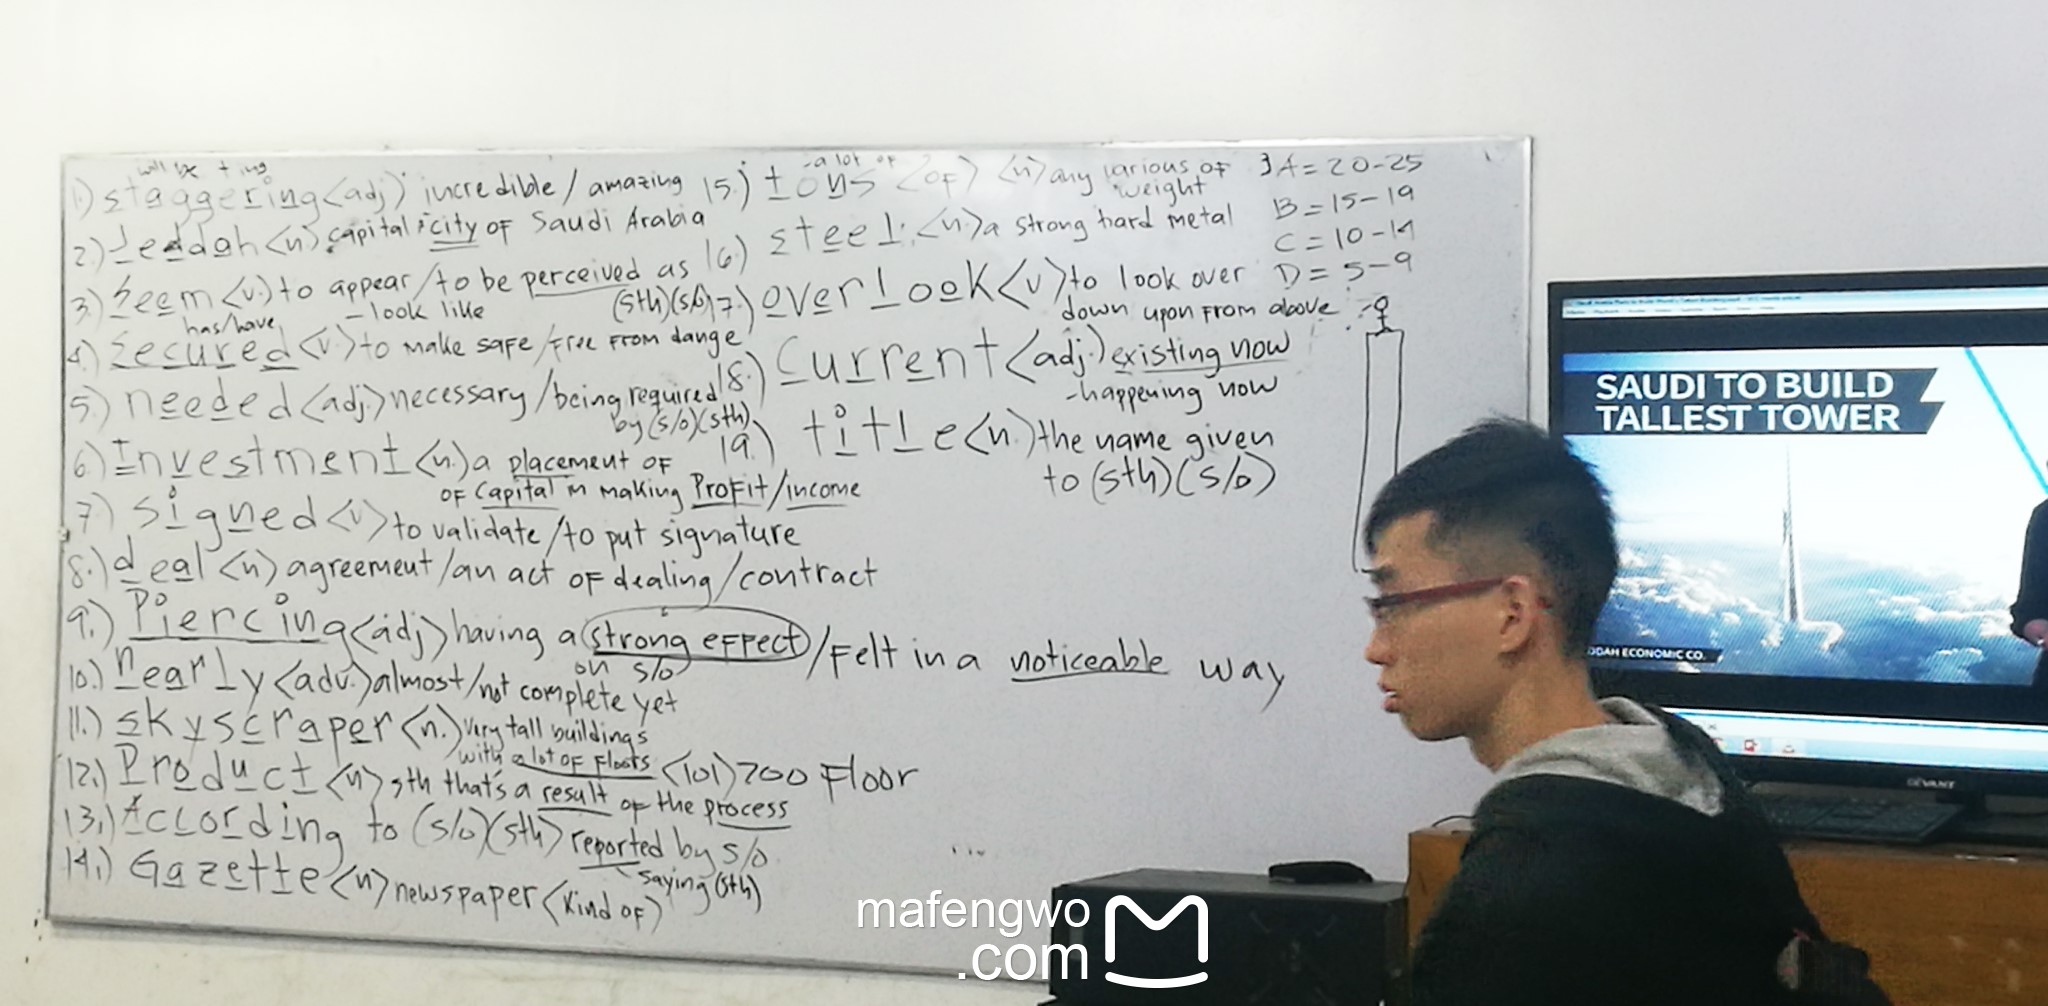 will be + ing
1.) staggering <adj> incredible / amazing
2.) Jeddah <n> capital city of Saudi Arabia
3.) Seem <v.> to appear / to be perceived as
- look like (sth)(s/o)
has/have
4.) Secured <v.> to make safe / free from dange
5.) needed <adj.> necessary / being required
by (s/o)(sth)
6.) Investment <n.> a placement of
of capital in making Profit / income
7.) signed <v> to validate / to put signature
8.) deal <n> agreement / an act of dealing / contract
9.) Piercing <adj> having a strong effect / felt in a noticeable way
on s/o
10.) nearly <adv.> almost / not complete yet
11.) skyscraper <n.> very tall buildings
with a lot of floors <101> 200 Floor
12.) Product <n> sth that's a result of the process
13.) According to (s/o)(sth) reported by s/o
- saying (sth)
14.) Gazette <n> newspaper <kind of>
- a lot of
15.) tons <of> <n> any various of
weight
16.) steel: <n.> a strong hard metal
17.) overlook <v> to look over
down upon from above
18.) Current <adj.> existing now
- happening now
19.) title <n.> the name given
to (sth)(s/o)
A = 20-25
B = 15-19
C = 10-14
D = 5-9
SAUDI TO BUILD
TALLEST TOWER
DDAH ECONOMIC CO.
DEVANT
mafengwo
.com